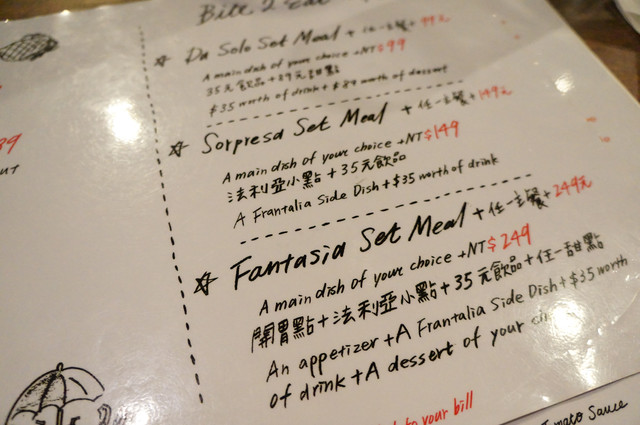 Bite 2 Eat
Da Solo Set Meal + 任一主餐 + 99元
A main dish of your choice +NT$99
35元飲品+89元甜點
$35 worth of drink + $89 worth of dessert
Sorpresa Set Meal + 任一主餐 + 149元
A main dish of your choice +NT$149
法利亞小點+35元飲品
A Frantalia Side Dish + $35 worth of drink
Fantasia Set Meal + 任一主餐 + 249元
A main dish of your choice +NT$249
開胃點+法利亞小點+35元飲品+任一甜點
An appetizer +A Frantalia Side Dish + $35 worth
of drink + A dessert of your
to your bill
Tomato Sauce
89
OUT